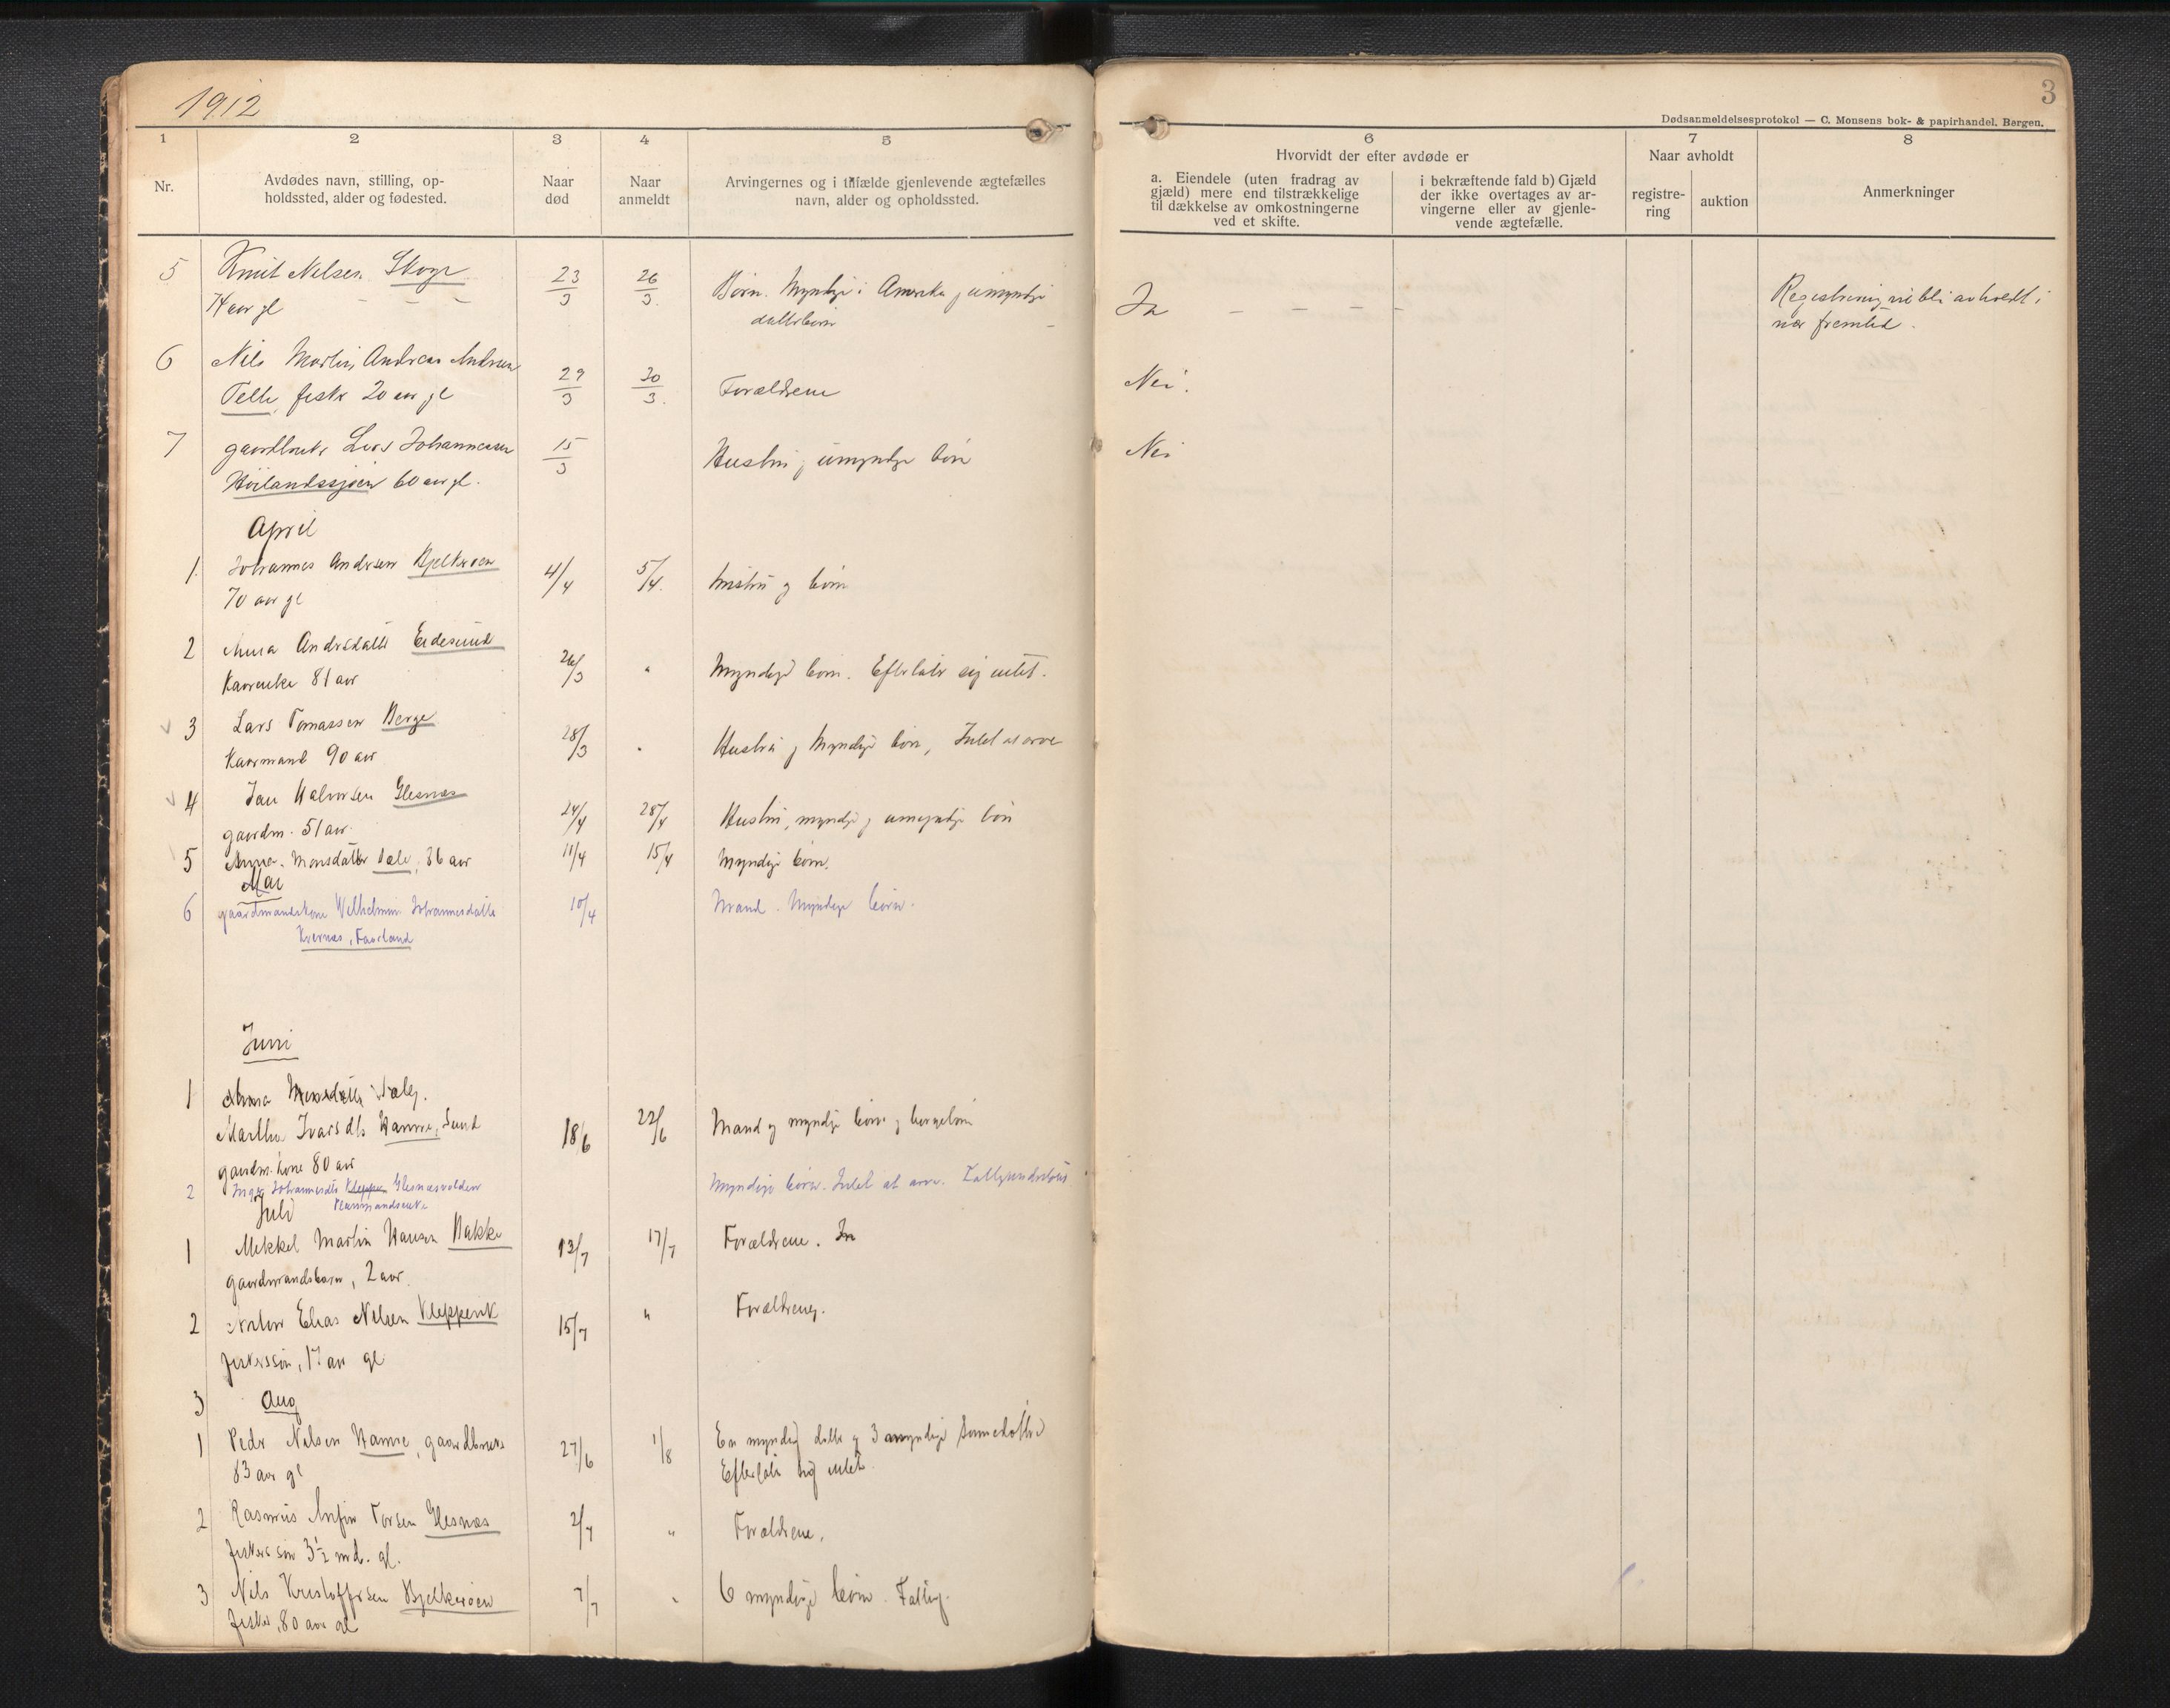 1912
3
Dødsanmeldelsesprotokol — C. Monsens bok- & papirhandel. Bergen.
1 2 3 4 5 6 7 8
Nr.
Avdødes navn, stilling, op-
holdssted, alder og fødested.
Naar
død
Naar
anmeldt
Arvingernes og i tilfælde gjenlevende ægtefælles
navn, alder og opholdssted.
Hvorvidt der efter avdøde er
a. Eiendele (uten fradrag av
gjæld) mere end tilstrækkelige
til dækkelse av omkostningerne
ved et skifte.
i bekræftende fald b) Gjæld
der ikke overtages av ar-
vingerne eller av gjenle-
vende ægtefælle.
Naar avholdt
registre-
ring
auktion
Anmerkninger
5 Knut Nelsen Skoge 23/3 26/3 Børn. Myndige i Amerika
74 aar gl datterbørn
Ja
Registrering vil bli avholdt i
nær fremtid.
6 Nils Martin Andreas Andersen
Telle, fisker 20 aar gl 29/3 30/3 Forældrene Nei.
7 gaardbruker Lars Johannessen 15/3 Hustru, umyndige børn Nei
Høilandssjøen 60 aar gl.
April
1. Johannes Andersen Bjelkerøen 4/4 5/4. hustru og børn
70 aar gl
2 Anna Andersdatter Eidesund 26/3 " Myndige børn. Efterlater sig intet.
Kaarenke 81 aar
3 Lars Tomassen Berge 28/3 " Hustru og Myndige børn, Intet at arve
Kaarmand 90 aar
4 Jan Halvorsen Glesnæs 24/4 28/4 Hustru, myndige og umyndige børn
gaardm. 51 aar.
5 Anna Monsdatter Vale, 86 aar 11/4 15/4 Myndige børn.
Mai
6 gaardmandskone Wilhelmine Johannesdatter 10/4 Mand. Myndige børn.
Kvernæs, Faarland
Juni
1 Anna Monsdatter
Martha Ivarsdtr Hamre, Sund 18/6 22/6 Mand og myndige børn og
gaardm. kone 80 aar
2 Inger Johannesdtr Kleppen Glesnæsvolden Myndige børn. Intet at arve.
Juli
1 Mikkel Martin Hansen Bakke 13/7 17/7 Forældrene.
gaardmandsbarn, 2 aar.
2 Elias Nelsen Kleppevik 15/7 " Forældrene.
fiskersøn, 17 aar gl
3 Aug
1 Peder Nelsen Hamre, gaardbruker 27/6 1/8 En myndig datter og 3 myndige sønnedøtre
83 aar gl Efterlater sig intet.
2 Rasmus Anfin Torsen Glesnæs 2/7 " Forældrene.
fiskers søn 3½ md. gl.
3 Nils Kristoffersen Bjelkerøen 7/7 " 6 myndige børn. Fattig.
fisker, 80 aar gl